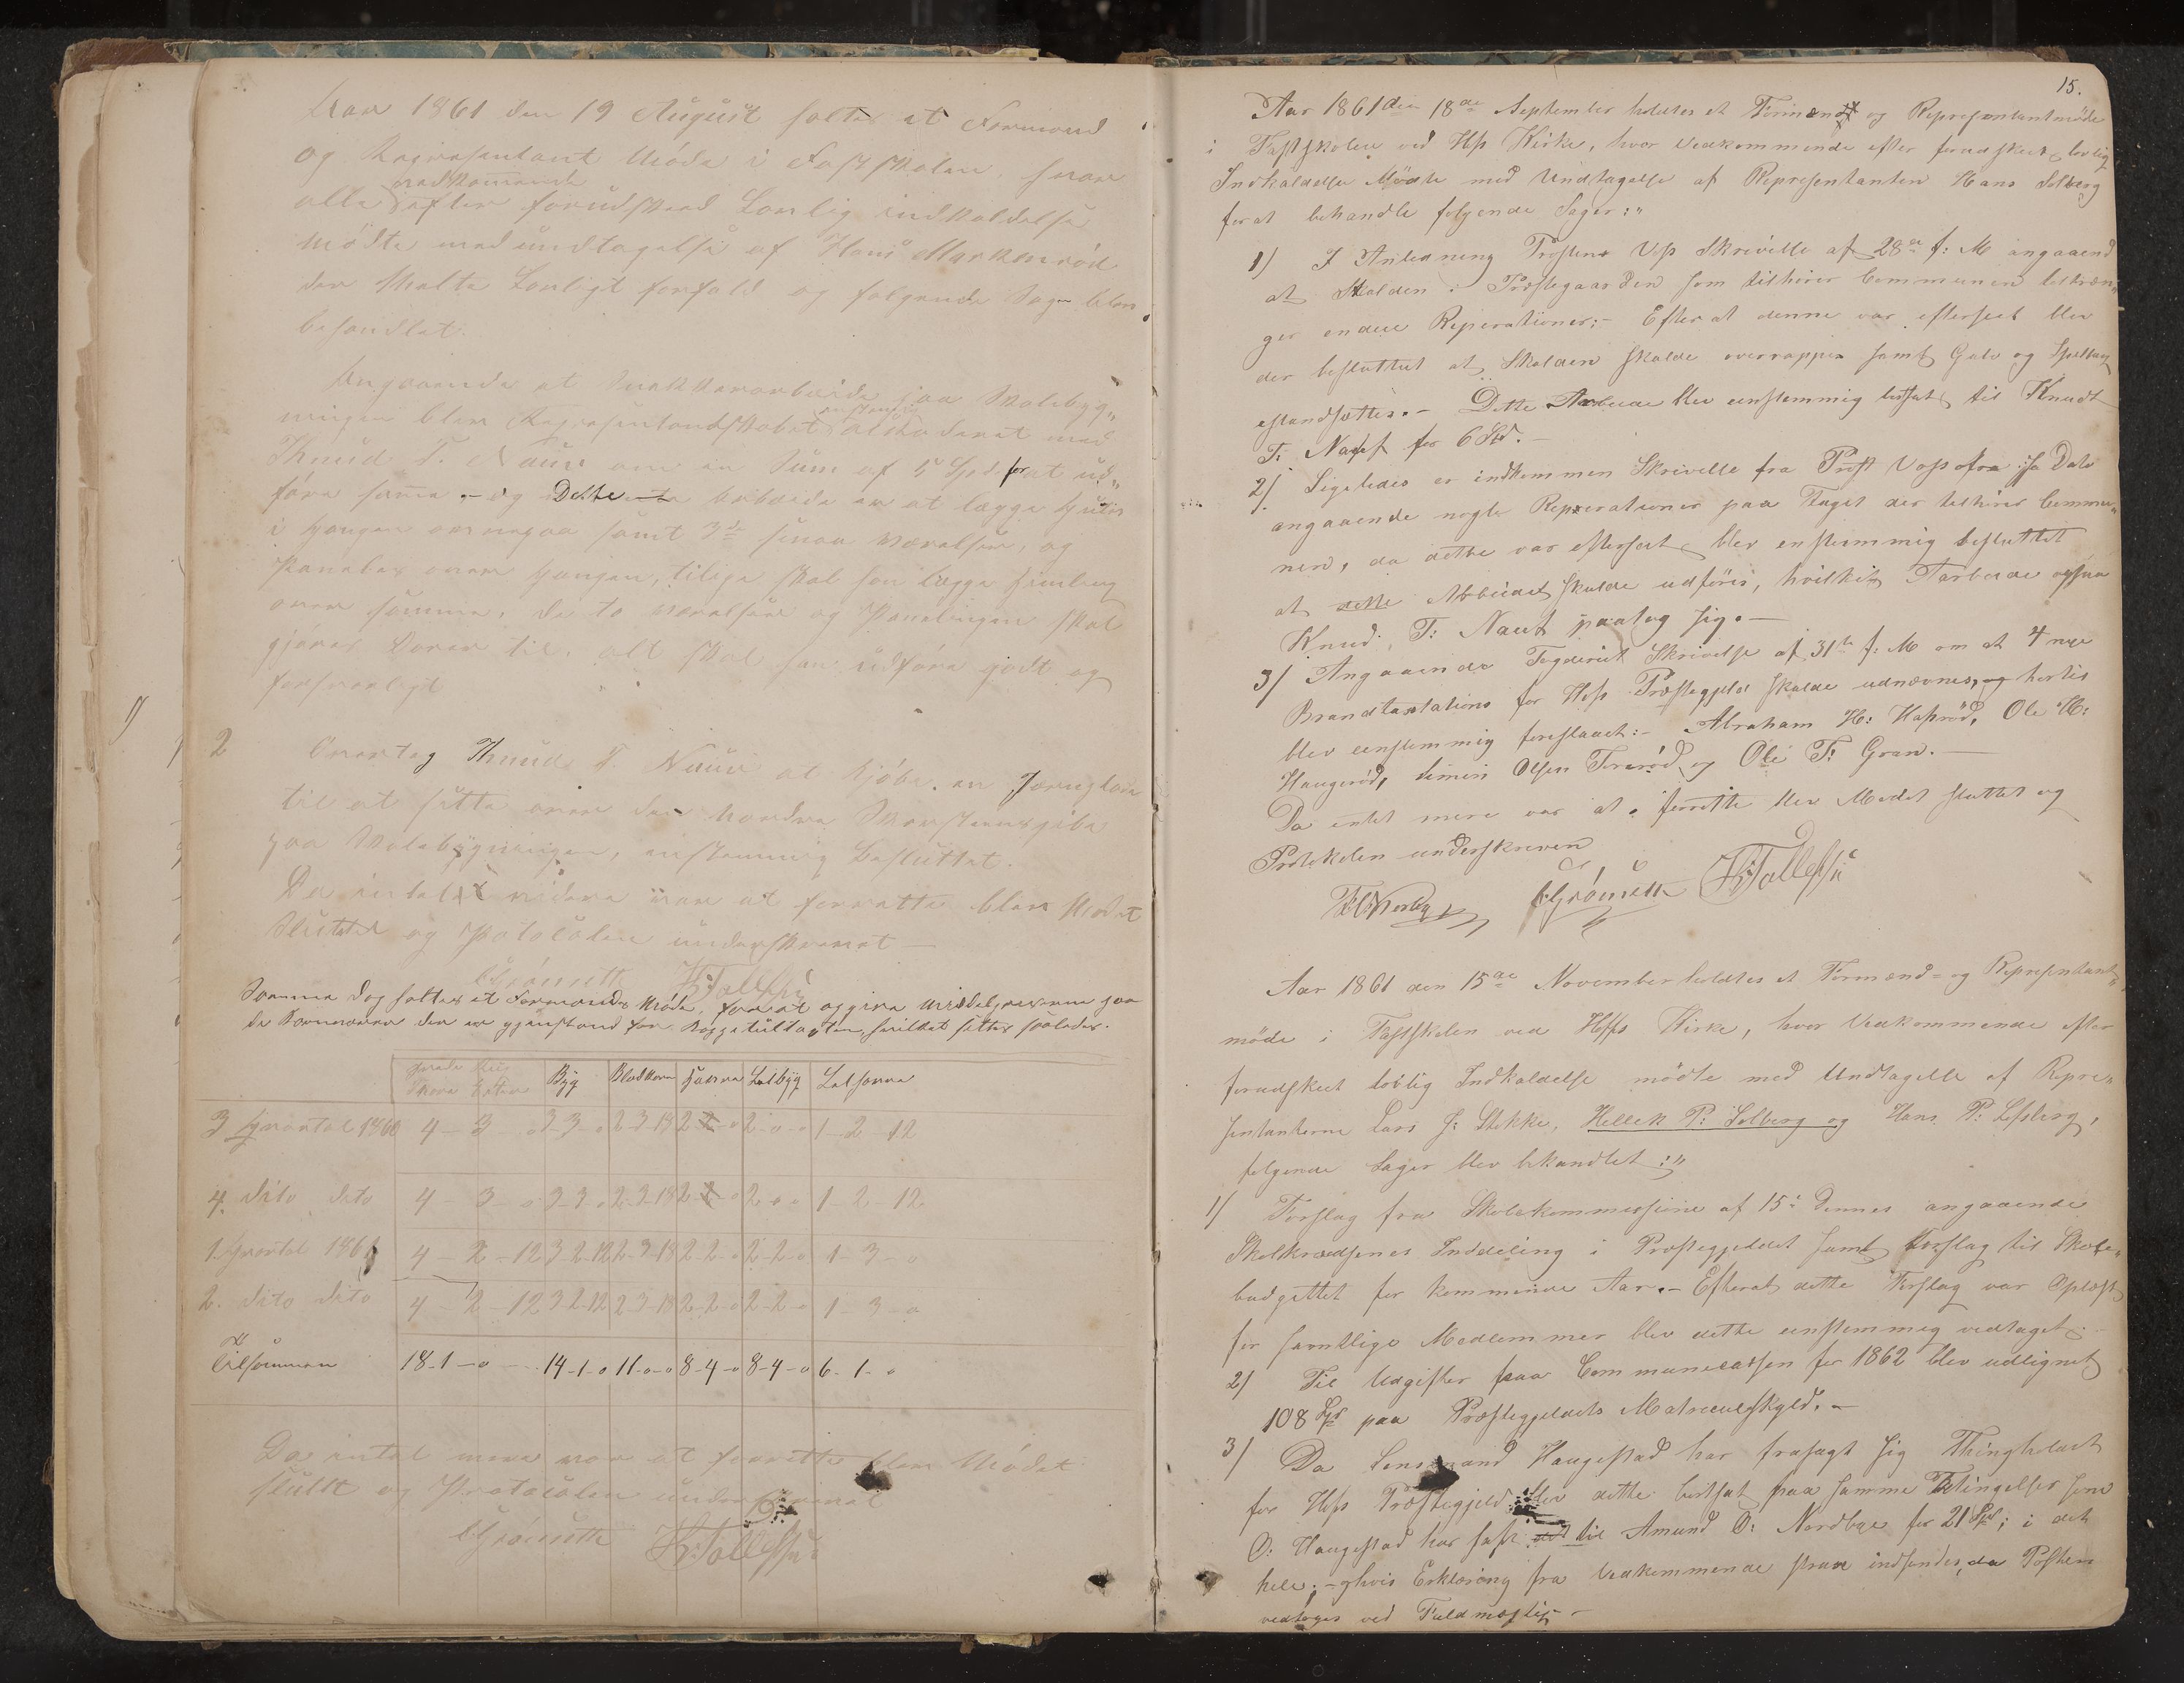 Aar 1861 den 19 August holtes et Formænd
og Representant Möde i Fastskolen, hvor
alle vedkommende efter forudskeed Lovlig indkaldelse
Mödte med undtagelse af Hans Markenröd
der Mælte Lovligt forfald og folgende Sager blev
behandlet.
Angaaende at Snekkerarbeide paa Skolebyg„
ningen blev Representandskabet enstemig akkoderet med
Knud T. Nauv om en Sum af 5 Spd for at ud„
føre samme, – og Dette Arbeide er at lægge Gulv
i Gangen ovenpaa samt 3de smaa Værelser, og
Panelve over Gangen, tilige skal han lægge himling
over samme, de to Værelser og Panelingen skal
gjøres Dører til, alt skal han udføre godt og
forsvarligt
2 Overtog Knud T. Nauv at kjøbe en Jernplade
til at sætte over den nordre Skorstenspibe
paa Skolebygningen, enstemmig besluttet.
Da intet videre var at forrette blev Mødet
Sluttet og Protocolen underskrevet —
C Grönsett H: Tollefsen
Samme Dag holtes et Formands Möde, for at opgive Middelpriserne paa
de Kornvarer der er gjenstand for Kappetultagten, hvilket sættes saaledes.
Byg Blodkorn Havre Salbyg Salhavre
3 Qvartal 1860 4 – 3 – 0 3-3-0 2-3-18 2-2-0 2-0-0 1-2-12
4. dito dito 4 – 3 – 0 3-3-0 2-3-18 2-2-0 2-0-0 1-2-12
1 Qvartal 1861 4 – 2 – 12 3-2-12 2-3-18 2-2-0 2-2-0 1-3-0
2. dito dito 4 – 2 – 12 3-2-12 2-3-18 2-2-0 2-2-0 1-3-0
Tilsammen 18-1-0 14-1-0 11-0-0 8-4-0 8-4-0 6-1-0
Da intet mere var at forrette blev Mödet
slutt og Protocolen underskrevet
C Grönsett H: Tollefsen
15.
Aar 1861 den 18de September holdtes et Formænd og Representantmöde
i Fastskolen ved Hofs Kirke, hvor Vedkommende efter forudskeet lovlig
Indkaldelse Mödte med Undtagelse af Representanten Hans Solberg
for at behandle folgende Sager:„
1) I Anledning Prosten Vos Skrivelse af 28de f: M angaaend
at Stalden i Præstegaarden som tilhører Communen tiltræn„
ger endeel Reperationer; – Efter at denne var efterseet blev
der besluttet at Stalden skulde overrappes samt Gulv og Spiltaug
istandsættes. – Dette Arbeide blev eenstemmig bortsat til Knudt
T: Naut for 6 Spd. –
2) Ligeledes er indkommen Skrivelse fra Prost Vos ofra sa Dato
angaaende nogle Reperationer paa Taget der tilhører Commu„
nen, da dette var efterseet blev enstemmig besluttet
at dette Arbeidet skulde udföres, hvilket Tarbeide ogsaa
Knud, T: Naut paatog sig. –
3) Angaaende Fogderiet Skrivelse af 31te f: M om at 4 nye
Brandtaxtations for Hofs Præstegjeld skulde udnævnes, og hertil
blev eenstemmig foreslaaet: – Abraham H: Hasröd, Ole H:
Haugeröd, Simen Olsen Teraröd, og Ole T: Gran. –
Da intet mere var at forrette blev Mødet sluttet og
Protokolen underskreven
C Grönsett H: Tollefsen
Aar 1861 den 15de November holdtes et Formænd- og Representant„
möde i Fastskolen ved Hofs Kirke, hvor Vedkommende efter
forudskeet lovlig Indkaldelse mödte med Undtagelse af Repre„
sentanterne Lars J: Slekke, Hellek P: Solberg og Hans P: Lofsberg,
folgende Sager blev behandlet:„
1) Forslag fra Skolekommissione af 15de Dennes angaaende
Skolkredsenes Inddeling i Præstegjeldet samt Forslag til Skole„
budgettet for kommende Aar. – Efterat dette Forslag var Oplæst
for samtlige Medlemmer blev dette eenstemmig vedtaget. –
2) Til Udgifter paa Communecassen for 1862 blev udlignet
108 Spd paa Præstegjeldets Matreculskyld. –
3) Da Lensmand Haugestad har frasagt sig Thingholdet
for Hofs Præstegjeld blev dette bortsat paa samme Betingelser som
O: Haugestad har haft det til Amund O: Nordbye for 21 Spd; i det
hele; – ghvis Erklæring fra Vedkommende strax indsendes, da Posten
vedtoges ved Fuldmægtig –